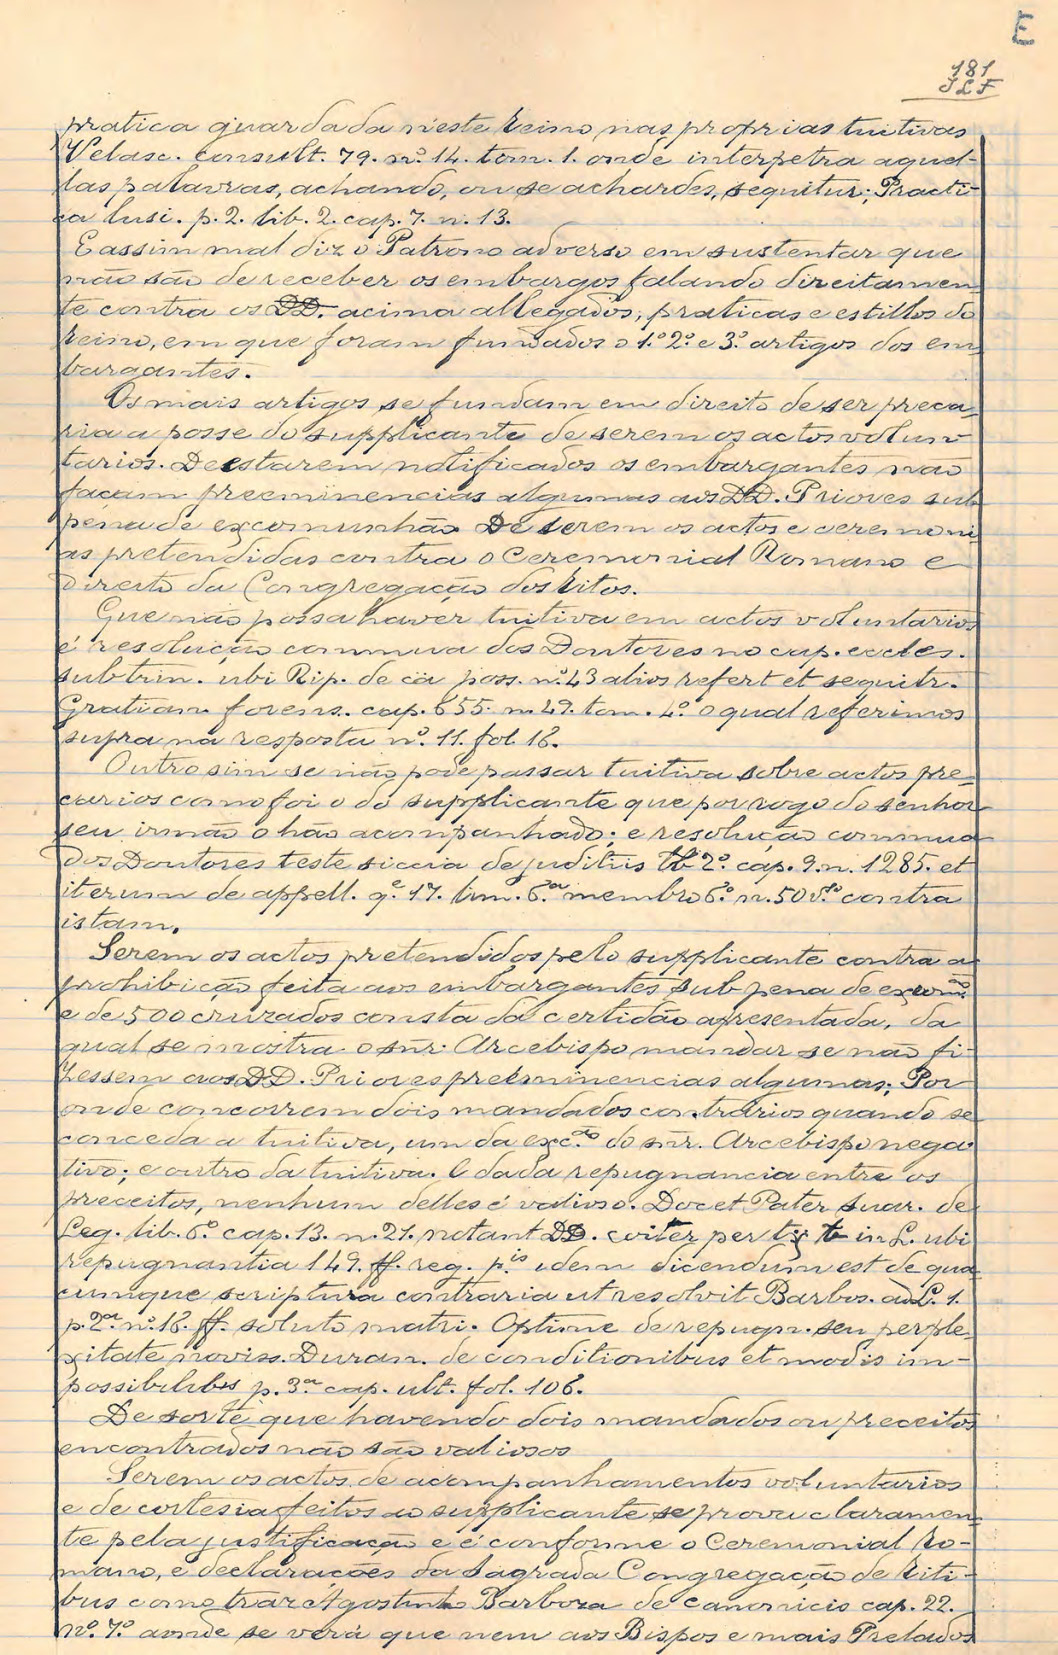 E
181
JLF
pratica guardada n'este reino nas proprias tuitivas
Velasc. consult. 79. nº. 14. tom. 1. onde interpetra aquel-
las palavras, achando, ou se achardes, sequitur; Practi-
ca lusi. p. 2. lib. 2. cap. 7. n. 13.
E assim mal diz o Patrono adverso em sustentar que
não são de receber os embargos falando direitamen-
te contra os DD. acima allegados, praticas e estillos do
reino, em que foram fundados o 1.º 2.º e 3.º artigos dos em-
bargantes.
Os mais artigos se fundam em direito de ser preca-
ria a posse do supplicante de serem os actos volun-
tarios. De estarem notificados os embargantes não
façam preeminencias algumas aos DD. Priores sub
pena de excomunhão De serem os actos e ceremoni-
as pretendidas contra o Ceremonial Romano e
Direito da Congregação dos Ritos.
Que não possa haver tuitiva em actos voluntarios
é resolução commua dos Doutores no cap. eccles.
sub trin. ubi Rip. de cã poss. nº. 43 alios refert et sequitr.
Gratian forens. cap. 655. n. 29. tom. 4.º o qual referimos
supra na resposta nº. 11. fol. 18.
Outro sim se não pode passar tuitiva sobre actos pre-
carios como foi o do supplicante que por rogo do senhor
seu irmão o hão acompanhado; e resolução commua
dos Doutores teste siccia de juditiis lb 2.º cap. 9. n. 1285. et
iterum de appell. q.e 17. lim. 6.a membro 6.º n. 50 contra
istam.
Serem os actos pretendidos pelo supplicante contra a
prohibição feita aos embargantes sub pena de excom.
e de 500 cruzados consta da certidão apresentada, da
qual se mostra o snr. Arcebispo mandar se não fi-
zessem aos DD. Priores preeminencias algumas; Por
onde concorrem dois mandados contrarios quando se
conceda a tuitiva, um da exc.ão do snr. Arcebispo nega-
tivo; e outro da tuitiva. E dada repugnancia entre os
preceitos, nenhum delles é valioso. Docet Pater Suar. de
Leg. lib. 6.º cap. 13. n. 21. notant DD. coiter per in L. ubi
repugnantia 149. ff. reg. p.is idem dicendum est de qua-
cumque scriptura contraria ut resolvit Barbos. ad L. 1.
p. 2.a nº. 18. ff. soluto matri. Optime de repugn. seu perple-
xitate noviss. Duran. de conditionibus et modis im-
possibilibus p. 3.a cap. ult. fol. 106.
De sorte que havendo dois mandados ou preceitos
encontrados não são valiosos
Serem os actos de acompanhamentos voluntarios
e de cortesia feitos ao supplicante se prova claramen-
te pela justificação e é conforme o Ceremonial Ro-
mano, e declarações da Sagrada Congregação de Riti-
bus como traz Agostinho Barboza de canonicis cap. 22.
nº. 7.º aonde se verá que nem aos Bispos e mais Prelados